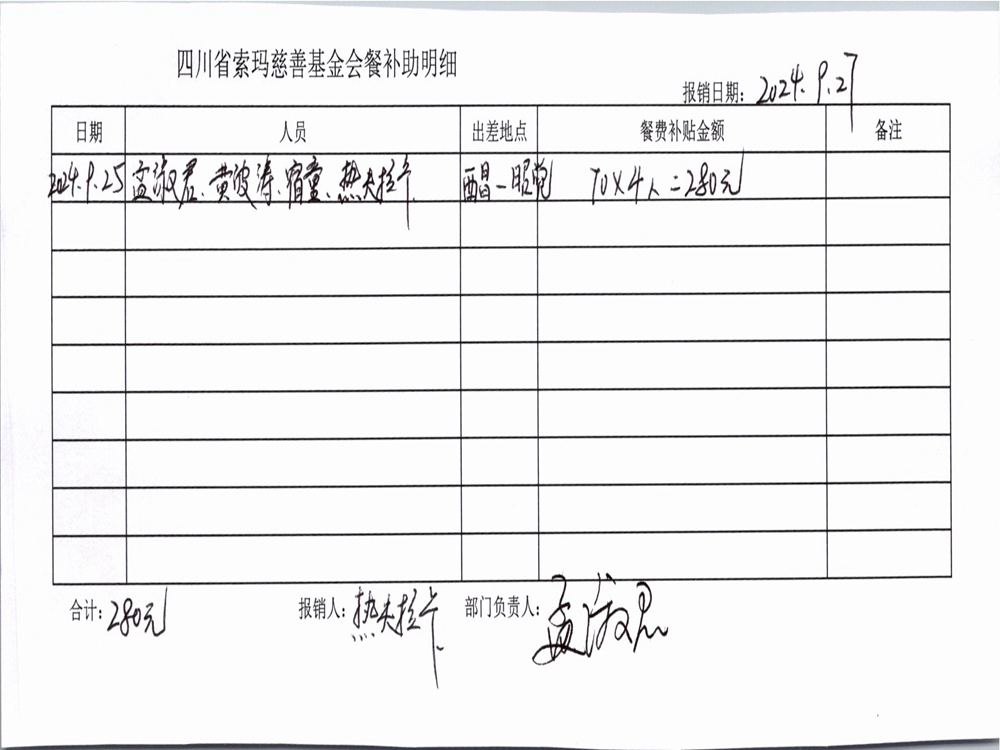 四川省索玛慈善基金会餐补助明细
报销日期: 2024.9.27
日期 人员 出差地点 餐费补贴金额 备注
2024.9.25 孟淑君、黄波涛、宿童、热夫拉卡 西昌—昭觉 70×4人=280元
合计: 280元 报销人: 热夫拉卡 部门负责人: 孟淑君